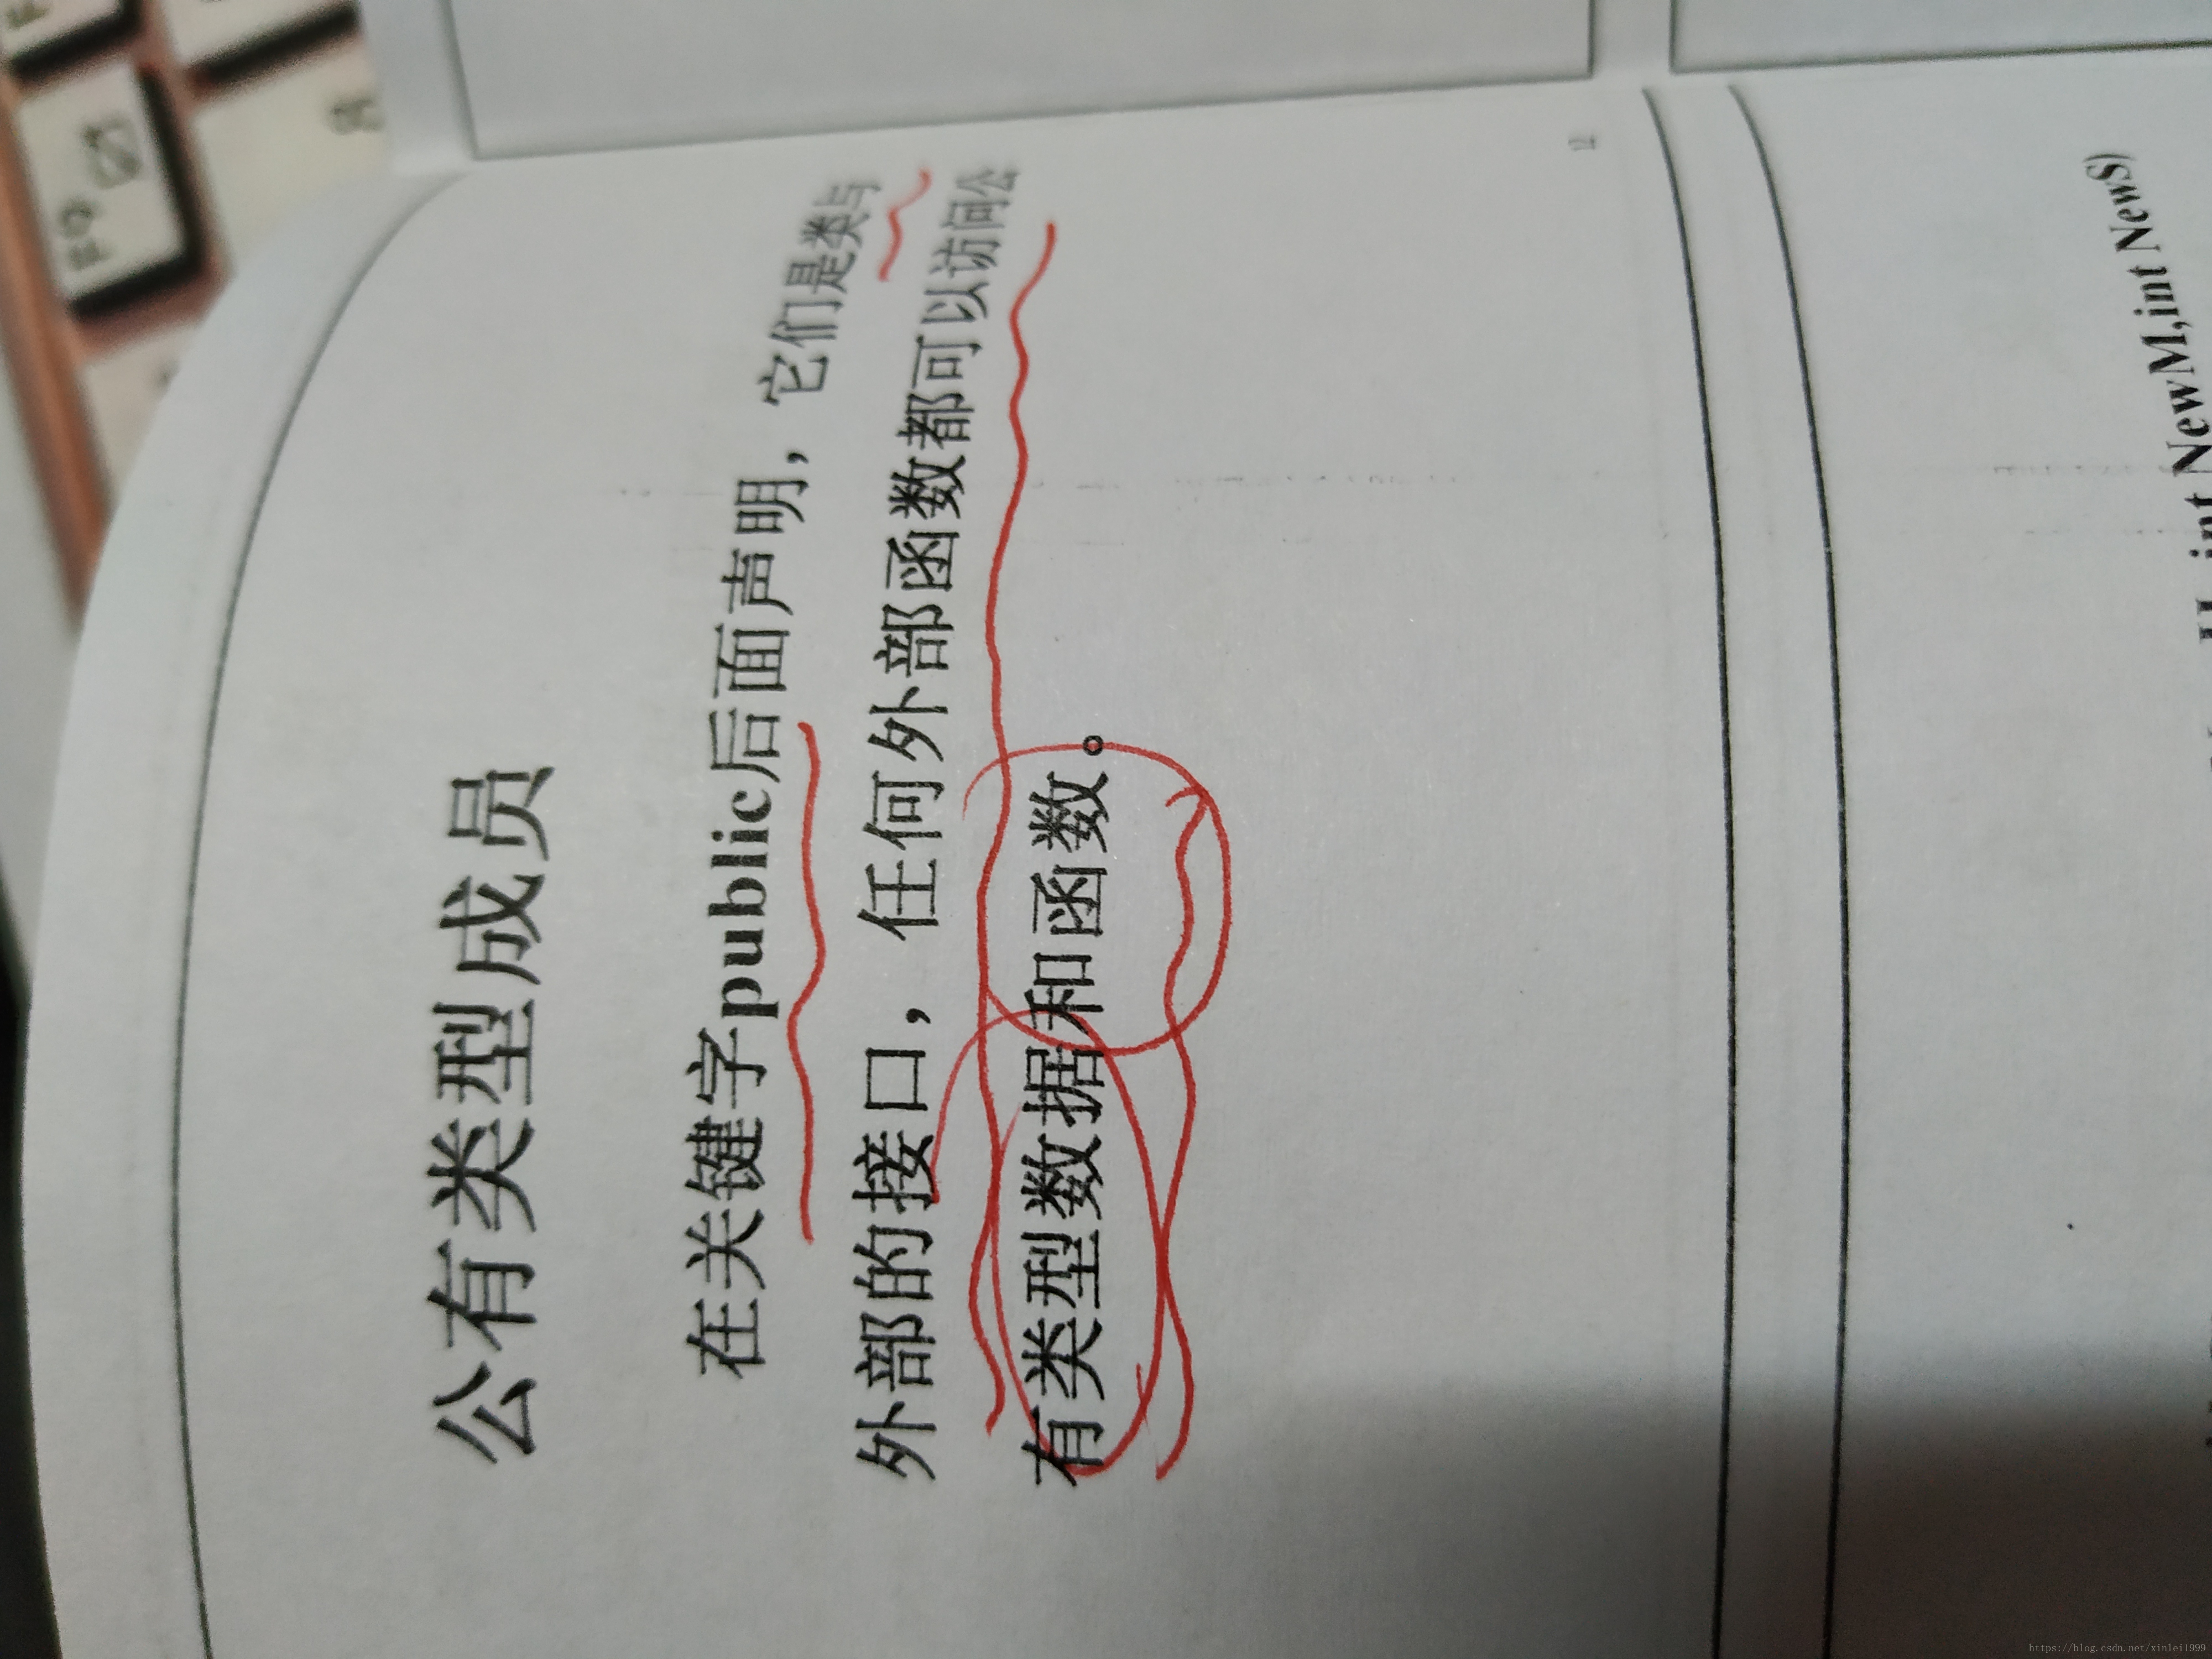 公有类型成员
在关键字public后面声明，它们是类与
外部的接口，任何外部函数都可以访问公
有类型数据和函数。
12
int NewM,int NewS)
F9
https://blog.csdn.net/xinlei1999